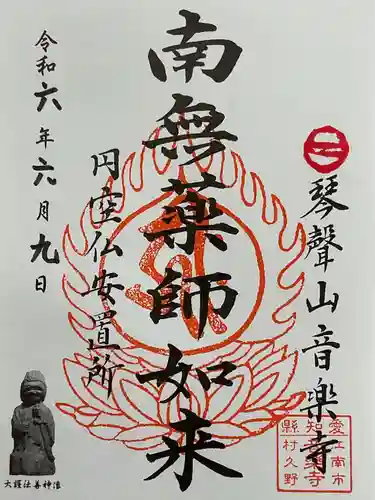 琴聲山音樂寺
南無藥師如来
円空仏安置所
令和六年六月九日
愛江南市
知音楽寺
縣村久野
大護法善神像